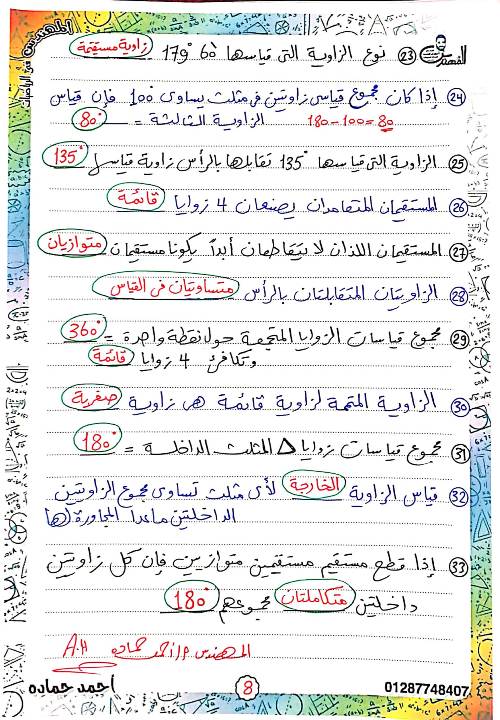 المهندس في الرياضيات
المهندس
(23) نوع الزاوية التى قياسها 60 179° زاوية مستقيمة
(24) إذا كان مجموع قياسى زاوتين فى مثلث يساوى 100° فإن قياس
الزاوية الثالثة = 80° 180-100=80
(25) الزاوية التى قياسها 135° تقابلها بالرأس زاوية قياسها 135°
(26) المستقيمان المتعامدان يصنعان 4 زوايا قائمة
(27) المستقيمان اللذان لا يتقاطعان أبداً يكونا مستقيمان متوازيان
(28) الزاويتان المتقابلتان بالرأس متساويتان فى القياس
(29) مجموع قياسات الزوايا المتجمعة حول نقطة واحدة = 360°
وتكافئ 4 زوايا قائمة
(30) الزاوية المتممة لزاوية قائمة هى زاوية صفرية
(31) مجموع قياسات زوايا Δ المثلث الداخلة = 180°
(32) قياس الزاوية الخارجة لأى مثلث تساوى مجموع الزاوتين
الداخلتين ماعدا المجاورة لها
(33) إذا قطع مستقيم مستقيمين متوازيين فإن كل زاوتين
داخلتين متكاملتان مجموعهم 180°
المهندس م/أحمد حماده A.H
احمد حماده
8
01287748407